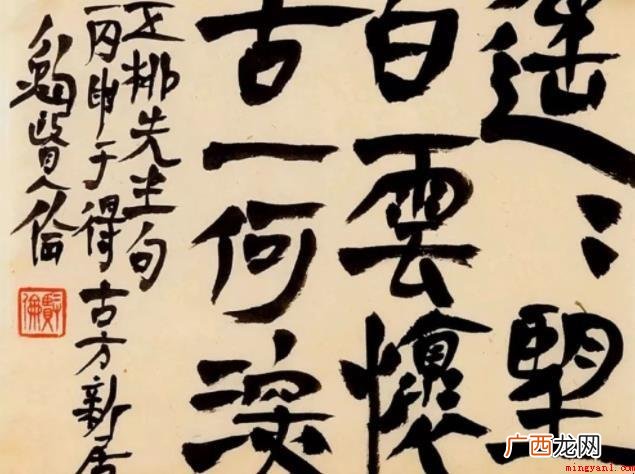 遙〻望
白雲懷
古一何深
五柳先生句
丙申于得古方新居
賢倫
賢倫
广西龙网
mingyan1.com